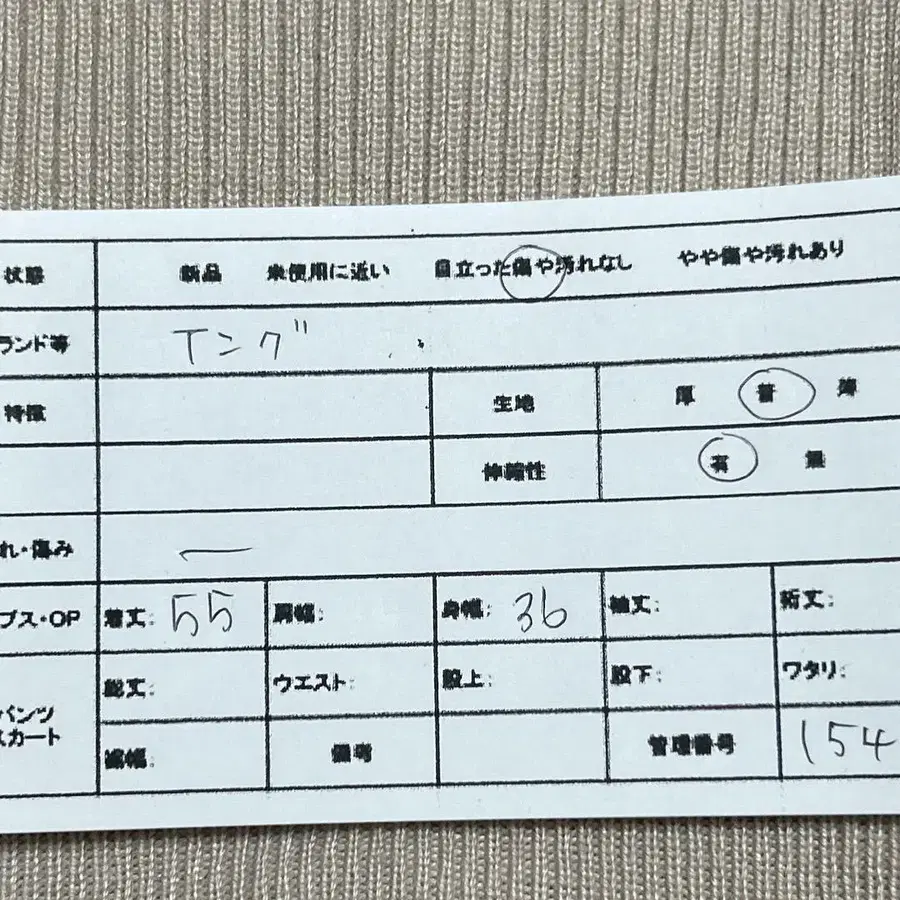 状態 新品 未使用に近い 目立った傷や汚れなし やや傷や汚れあり
ランド等 Tング
特徴 生地 厚 普 薄
伸縮性 有 無
れ・傷み ー
プス・OP 着丈: 55 肩幅: 身幅: 36 袖丈: 裄丈:
パンツ 総丈: ウエスト: 股上: 股下: ワタリ:
スカート
裾幅: 備考 管理番号 154